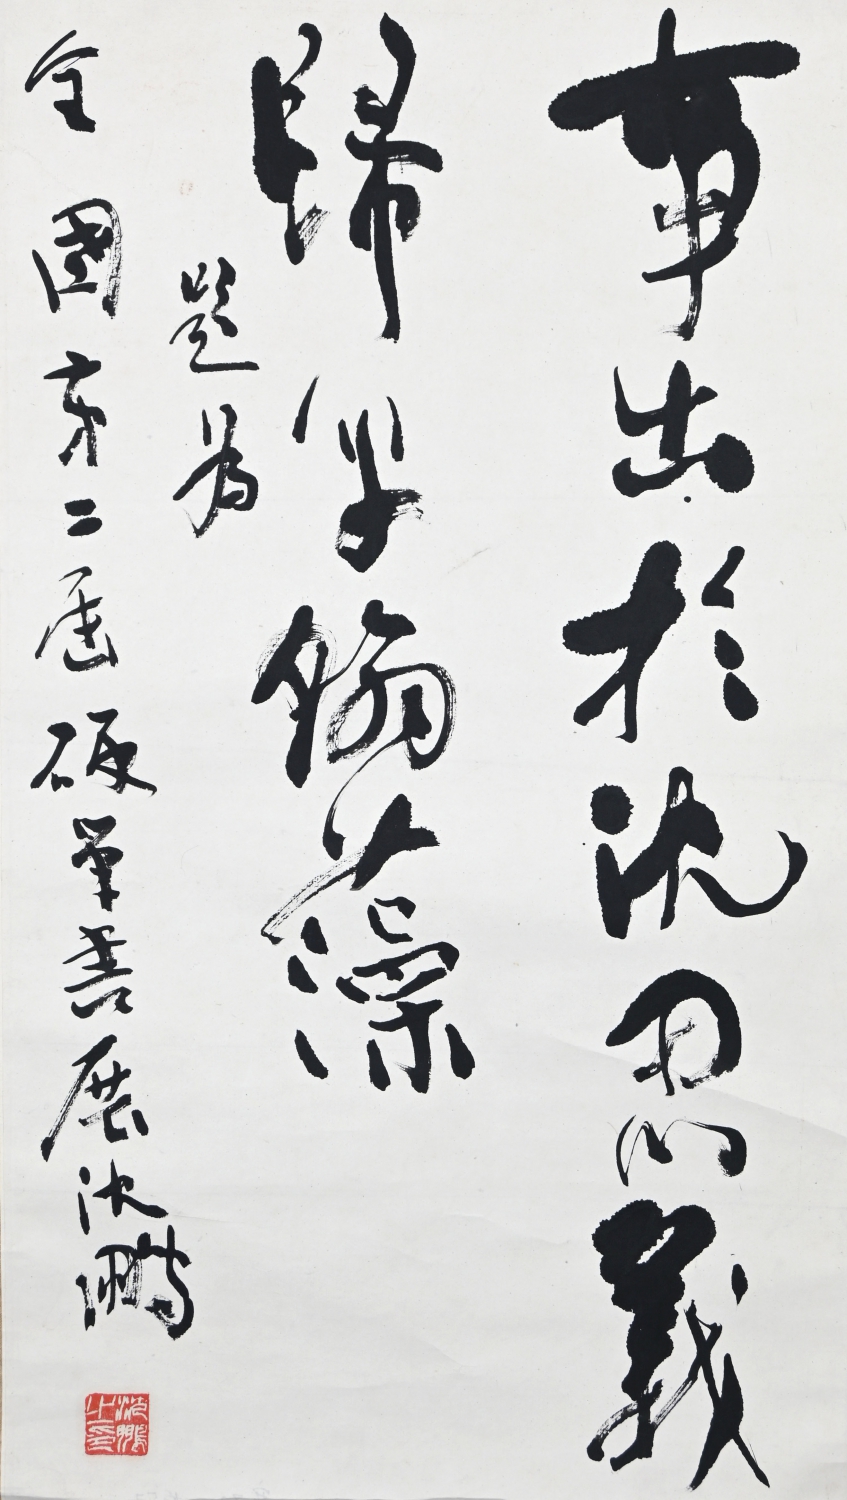 事出於沈思義
歸乎翰藻
題為
全國第二届硬筆書展沈鵬
沈鵬之印